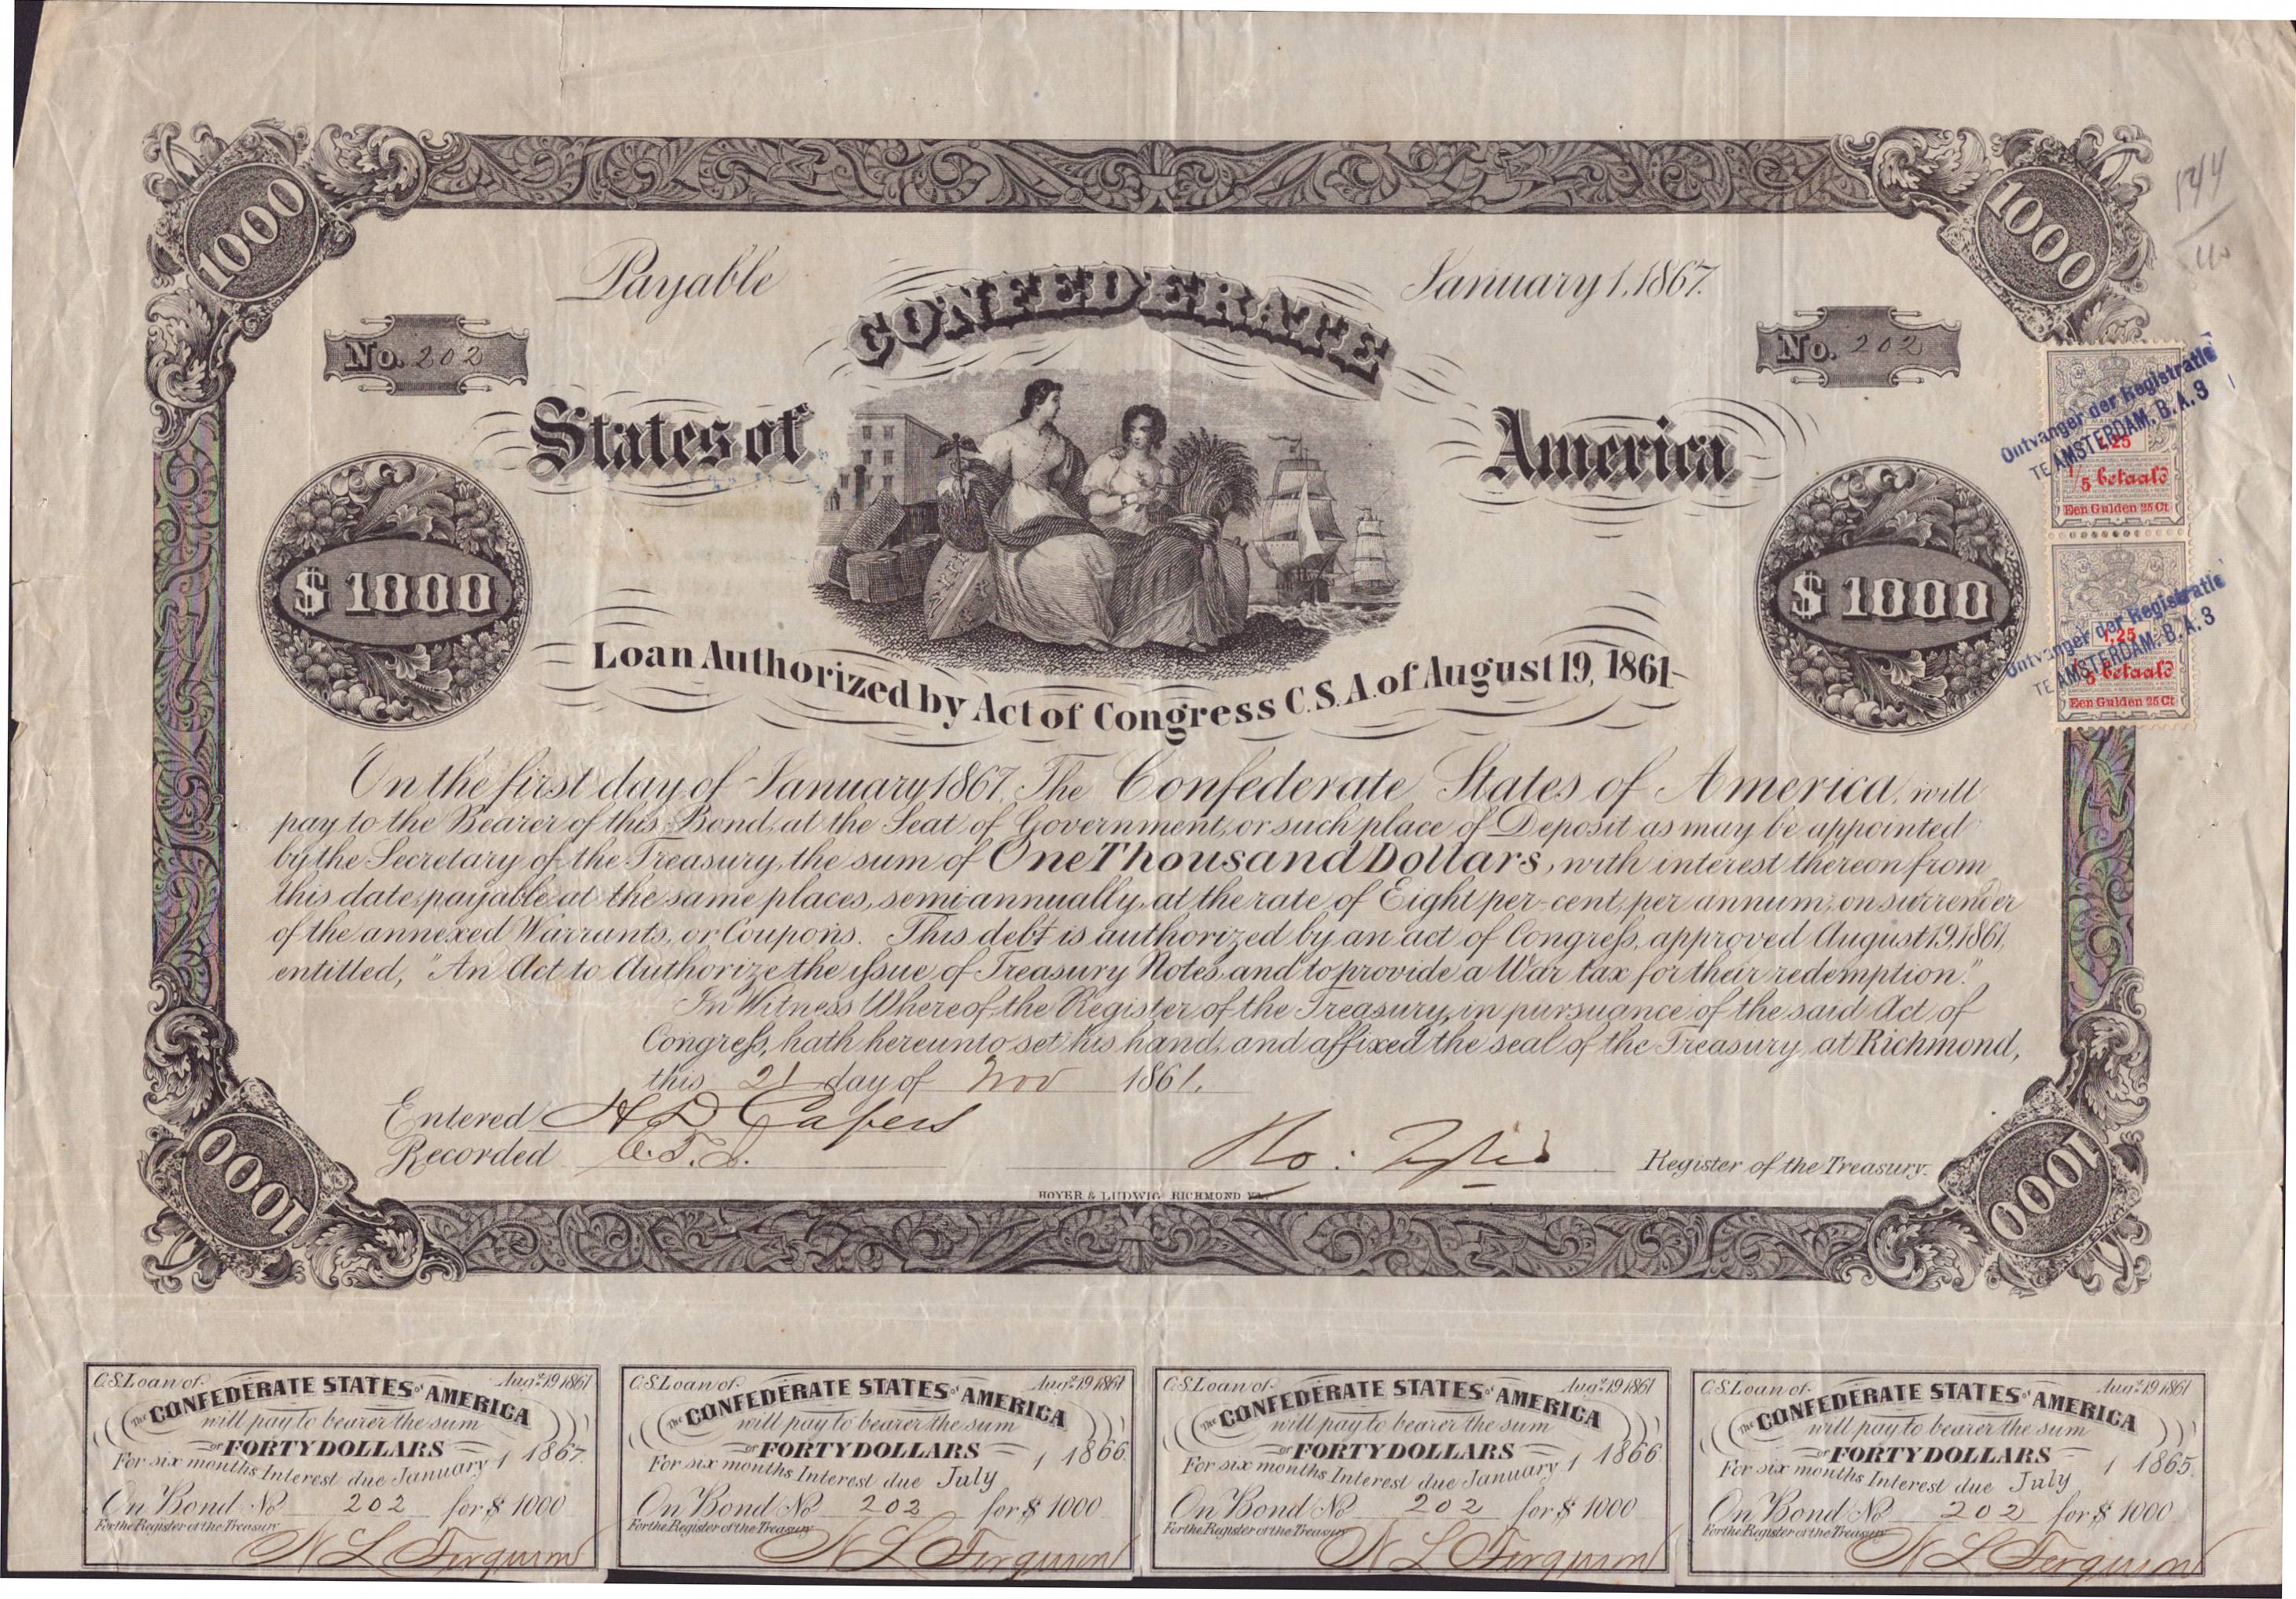 1000
1000
144
Payable
January 1, 1867.
CONFEDERATE
No. 202
No. 202
States of
America
$ 1000
$ 1000
Ontvanger der Registratie
TE AMSTERDAM, B. A. 3
1,25
1/5 betaald
Een Gulden 25 Ct
Ontvanger der Registratie
TE AMSTERDAM, B. A. 3
1,25
1/5 betaald
Een Gulden 25 Ct
Loan Authorized by Act of Congress C.S.A. of August 19, 1861
On the first day of January 1867, The Confederate States of America, will
pay to the Bearer of this Bond, at the Seat of Government, or such place of Deposit as may be appointed
by the Secretary of the Treasury, the sum of One Thousand Dollars, with interest thereon from
this date, payable at the same places, semi-annually, at the rate of Eight per-cent, per annum, on surrender
of the annexed Warrants, or Coupons. This debt is authorized by an act of Congress, approved August 19, 1861,
entitled, "An Act to Authorize the issue of Treasury Notes, and to provide a War tax for their redemption."
In Witness Whereof, the Register of the Treasury, in pursuance of the said Act of
Congress, hath hereunto set his hand, and affixed the seal of the Treasury, at Richmond,
this 21 day of Nov 1861.
Entered H D Capers
Recorded C. T. J.
Ro: Tyler Register of the Treasury.
HOYER & LUDWIG RICHMOND VA.
1000
1000
C.S. Loan of Augt. 19 1861
The CONFEDERATE STATES of AMERICA
will pay to bearer the sum
of FORTY DOLLARS
For six months Interest due January 1 1867.
On Bond No 202 for $ 1000
For the Register of the Treasury
N L Ferguson
C.S. Loan of Augt. 19 1861
The CONFEDERATE STATES of AMERICA
will pay to bearer the sum
of FORTY DOLLARS
For six months Interest due July 1 1866.
On Bond No 202 for $ 1000
For the Register of the Treasury
N L Ferguson
C.S. Loan of Augt. 19 1861
The CONFEDERATE STATES of AMERICA
will pay to bearer the sum
of FORTY DOLLARS
For six months Interest due January 1 1866
On Bond No 202 for $ 1000
For the Register of the Treasury
N L Ferguson
C.S. Loan of Augt. 19 1861
The CONFEDERATE STATES of AMERICA
will pay to bearer the sum
of FORTY DOLLARS
For six months Interest due July 1 1865.
On Bond No 202 for $ 1000
For the Register of the Treasury
N L Ferguson